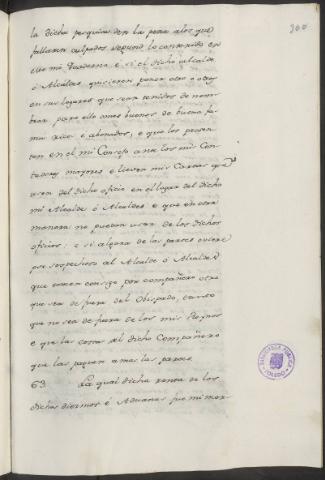 300
la dicha pesquisa den la pena a los que
fallaren culpados segund lo contenido en
este mi Quaderno é si el dicho Alcalde
ó Alcaldes quisieren poner otro ó otros
en sus logares que sean tenidos de nom-
brar para ello omes buenos de buena fa-
ma ricos é abonados, e que los presen-
ten en el mi Consejo ante los mis Con-
tadores mayores é lieven mis Cartas
usen del dicho oficio en el logar del dicho
mi Alcalde ó Alcaldes e que en otra
manera no puedan usar de los dichos
oficios: e si alguna de las partes oviere
por sospechoso al Alcalde ó Alcaldes
que tomen consigo por compañero otro
que sea de fuera del Obispado, tanto
que no sea de fuera de los mis Reynos
e que las costas del dicho Compañero
que las paguen amas las partes.
63 La qual dicha renta de los
dichos diezmos é Aduanas por mi mor-
BIBLIOTECA PUBLICA
TOLEDO